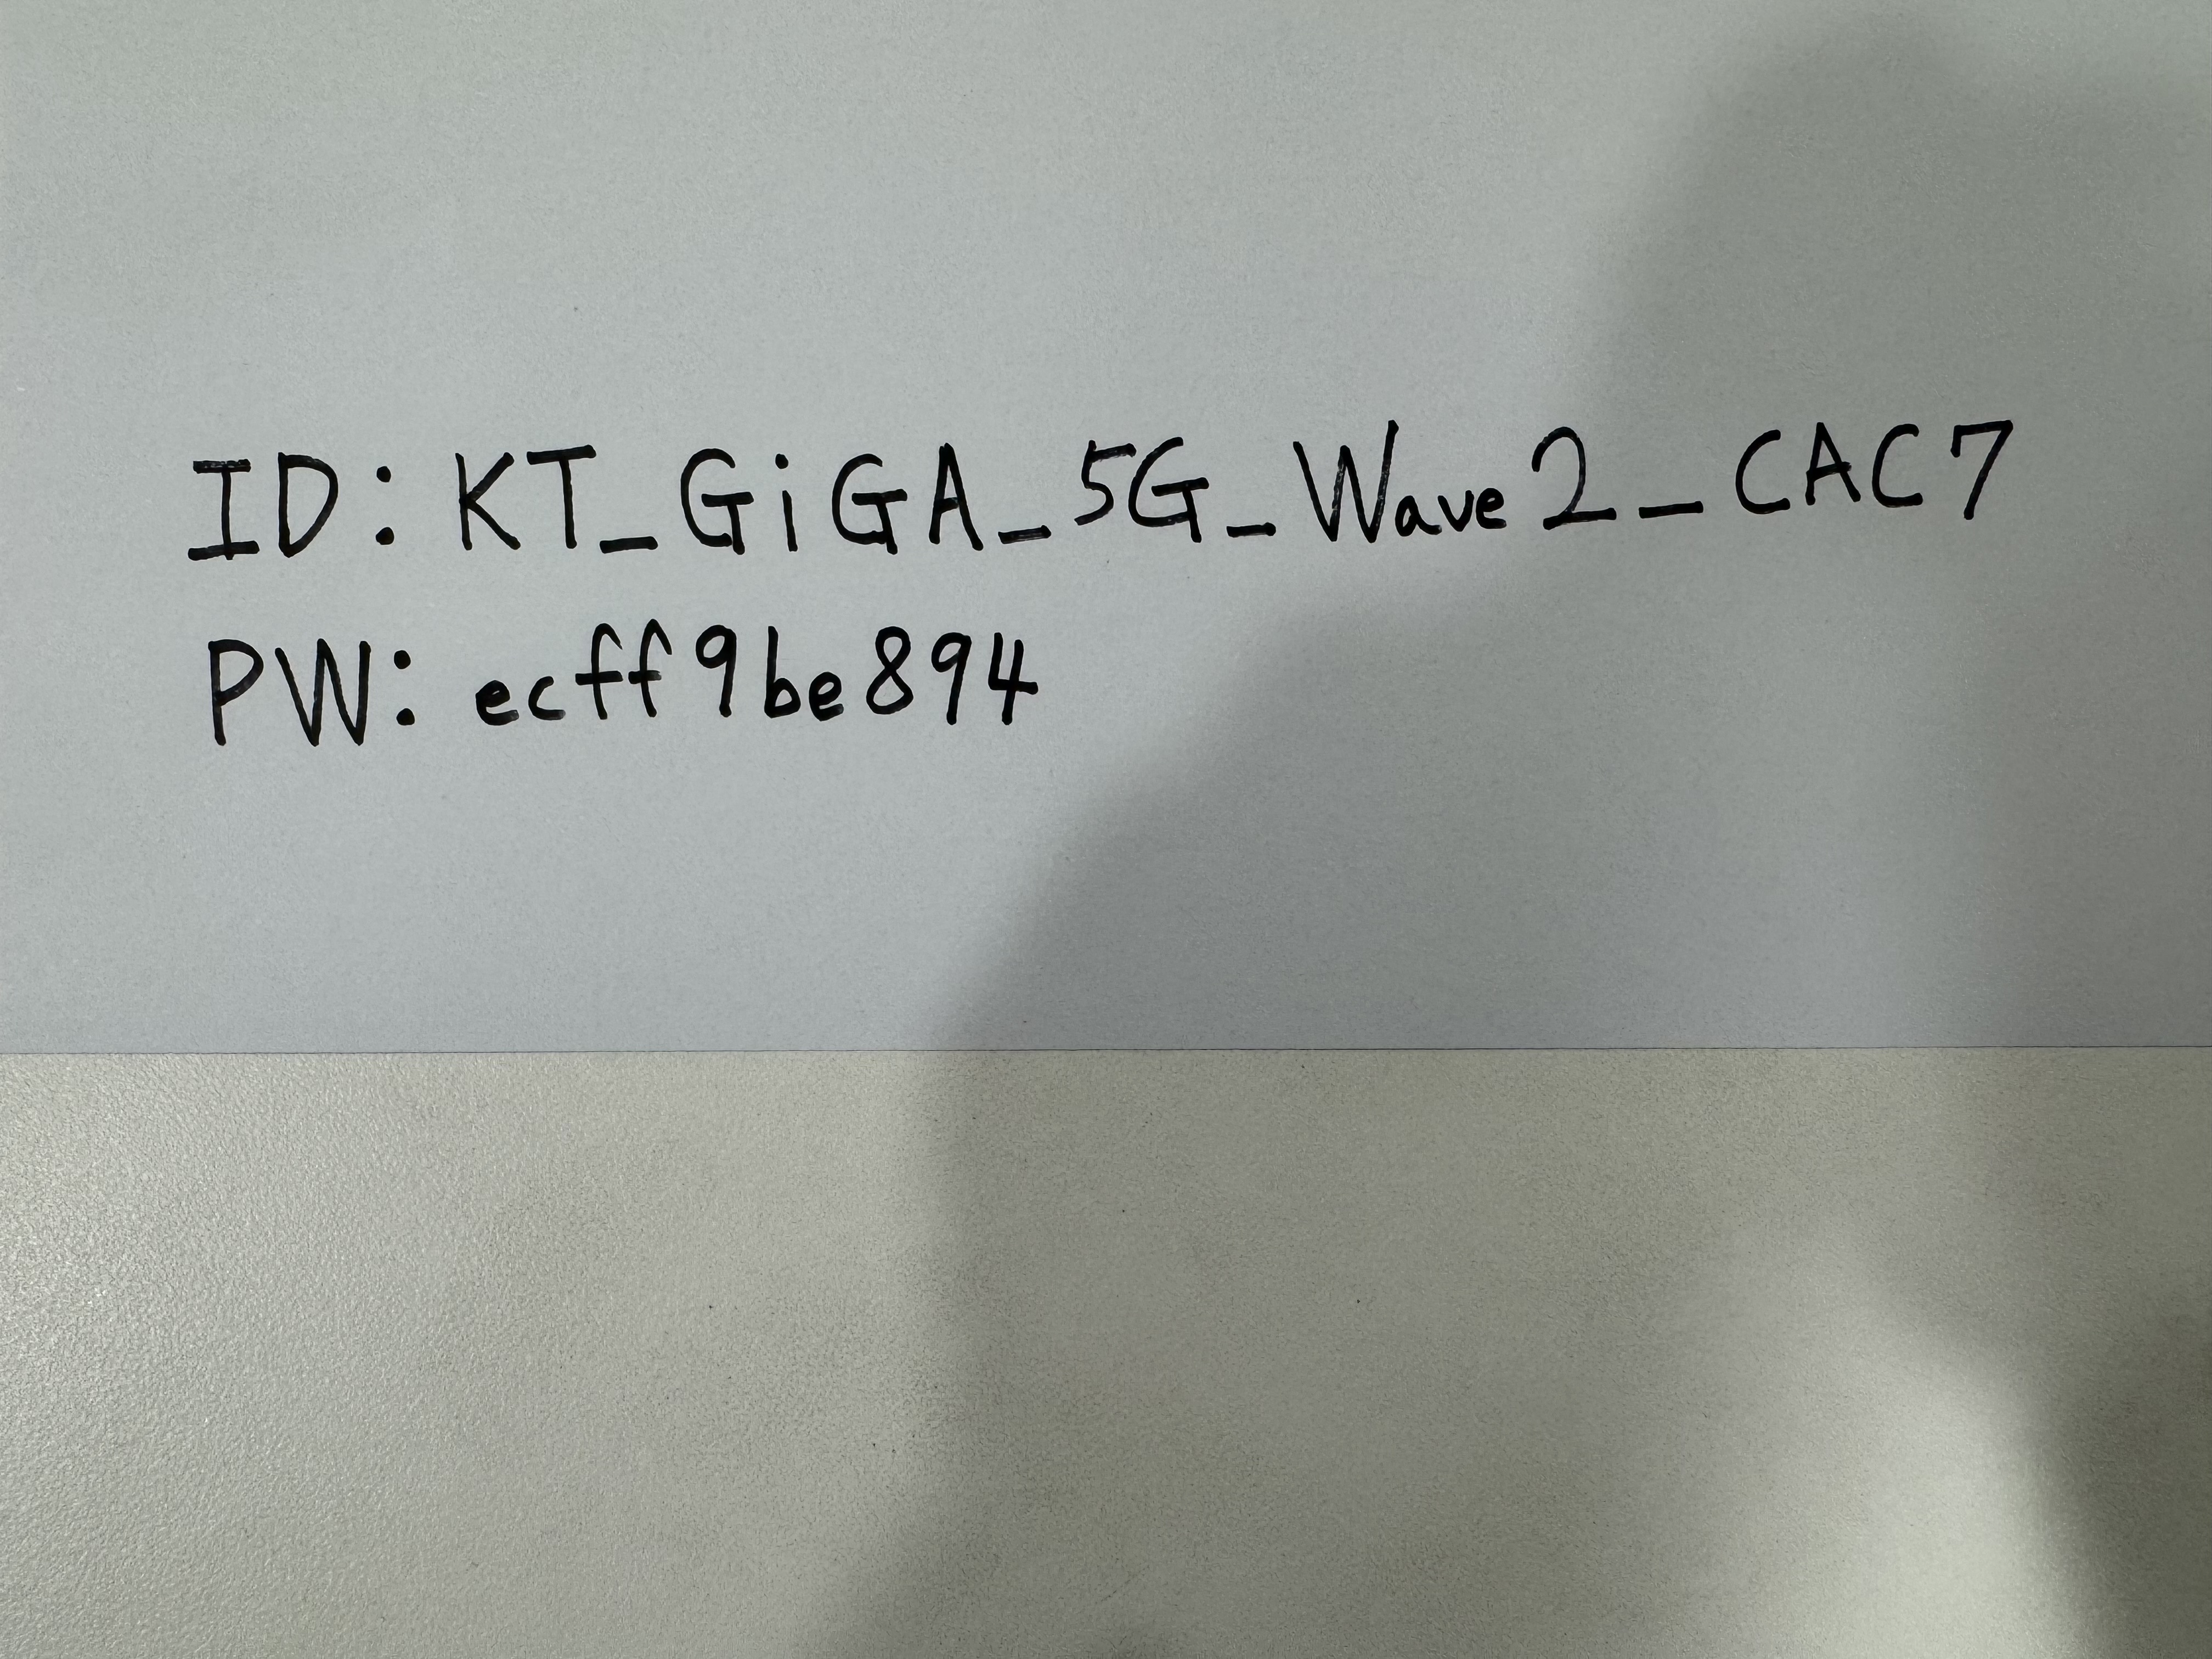 ID: KT_GiGA_5G_Wave2_CAC7
PW: ecff9be894